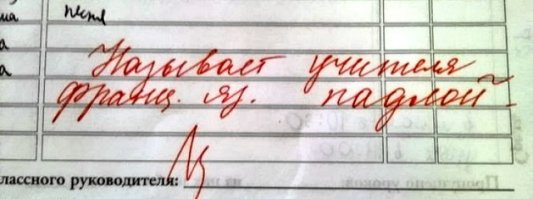 ма песня
а
а Называет учителя
франц. яз. падлой.
лассного руководителя: